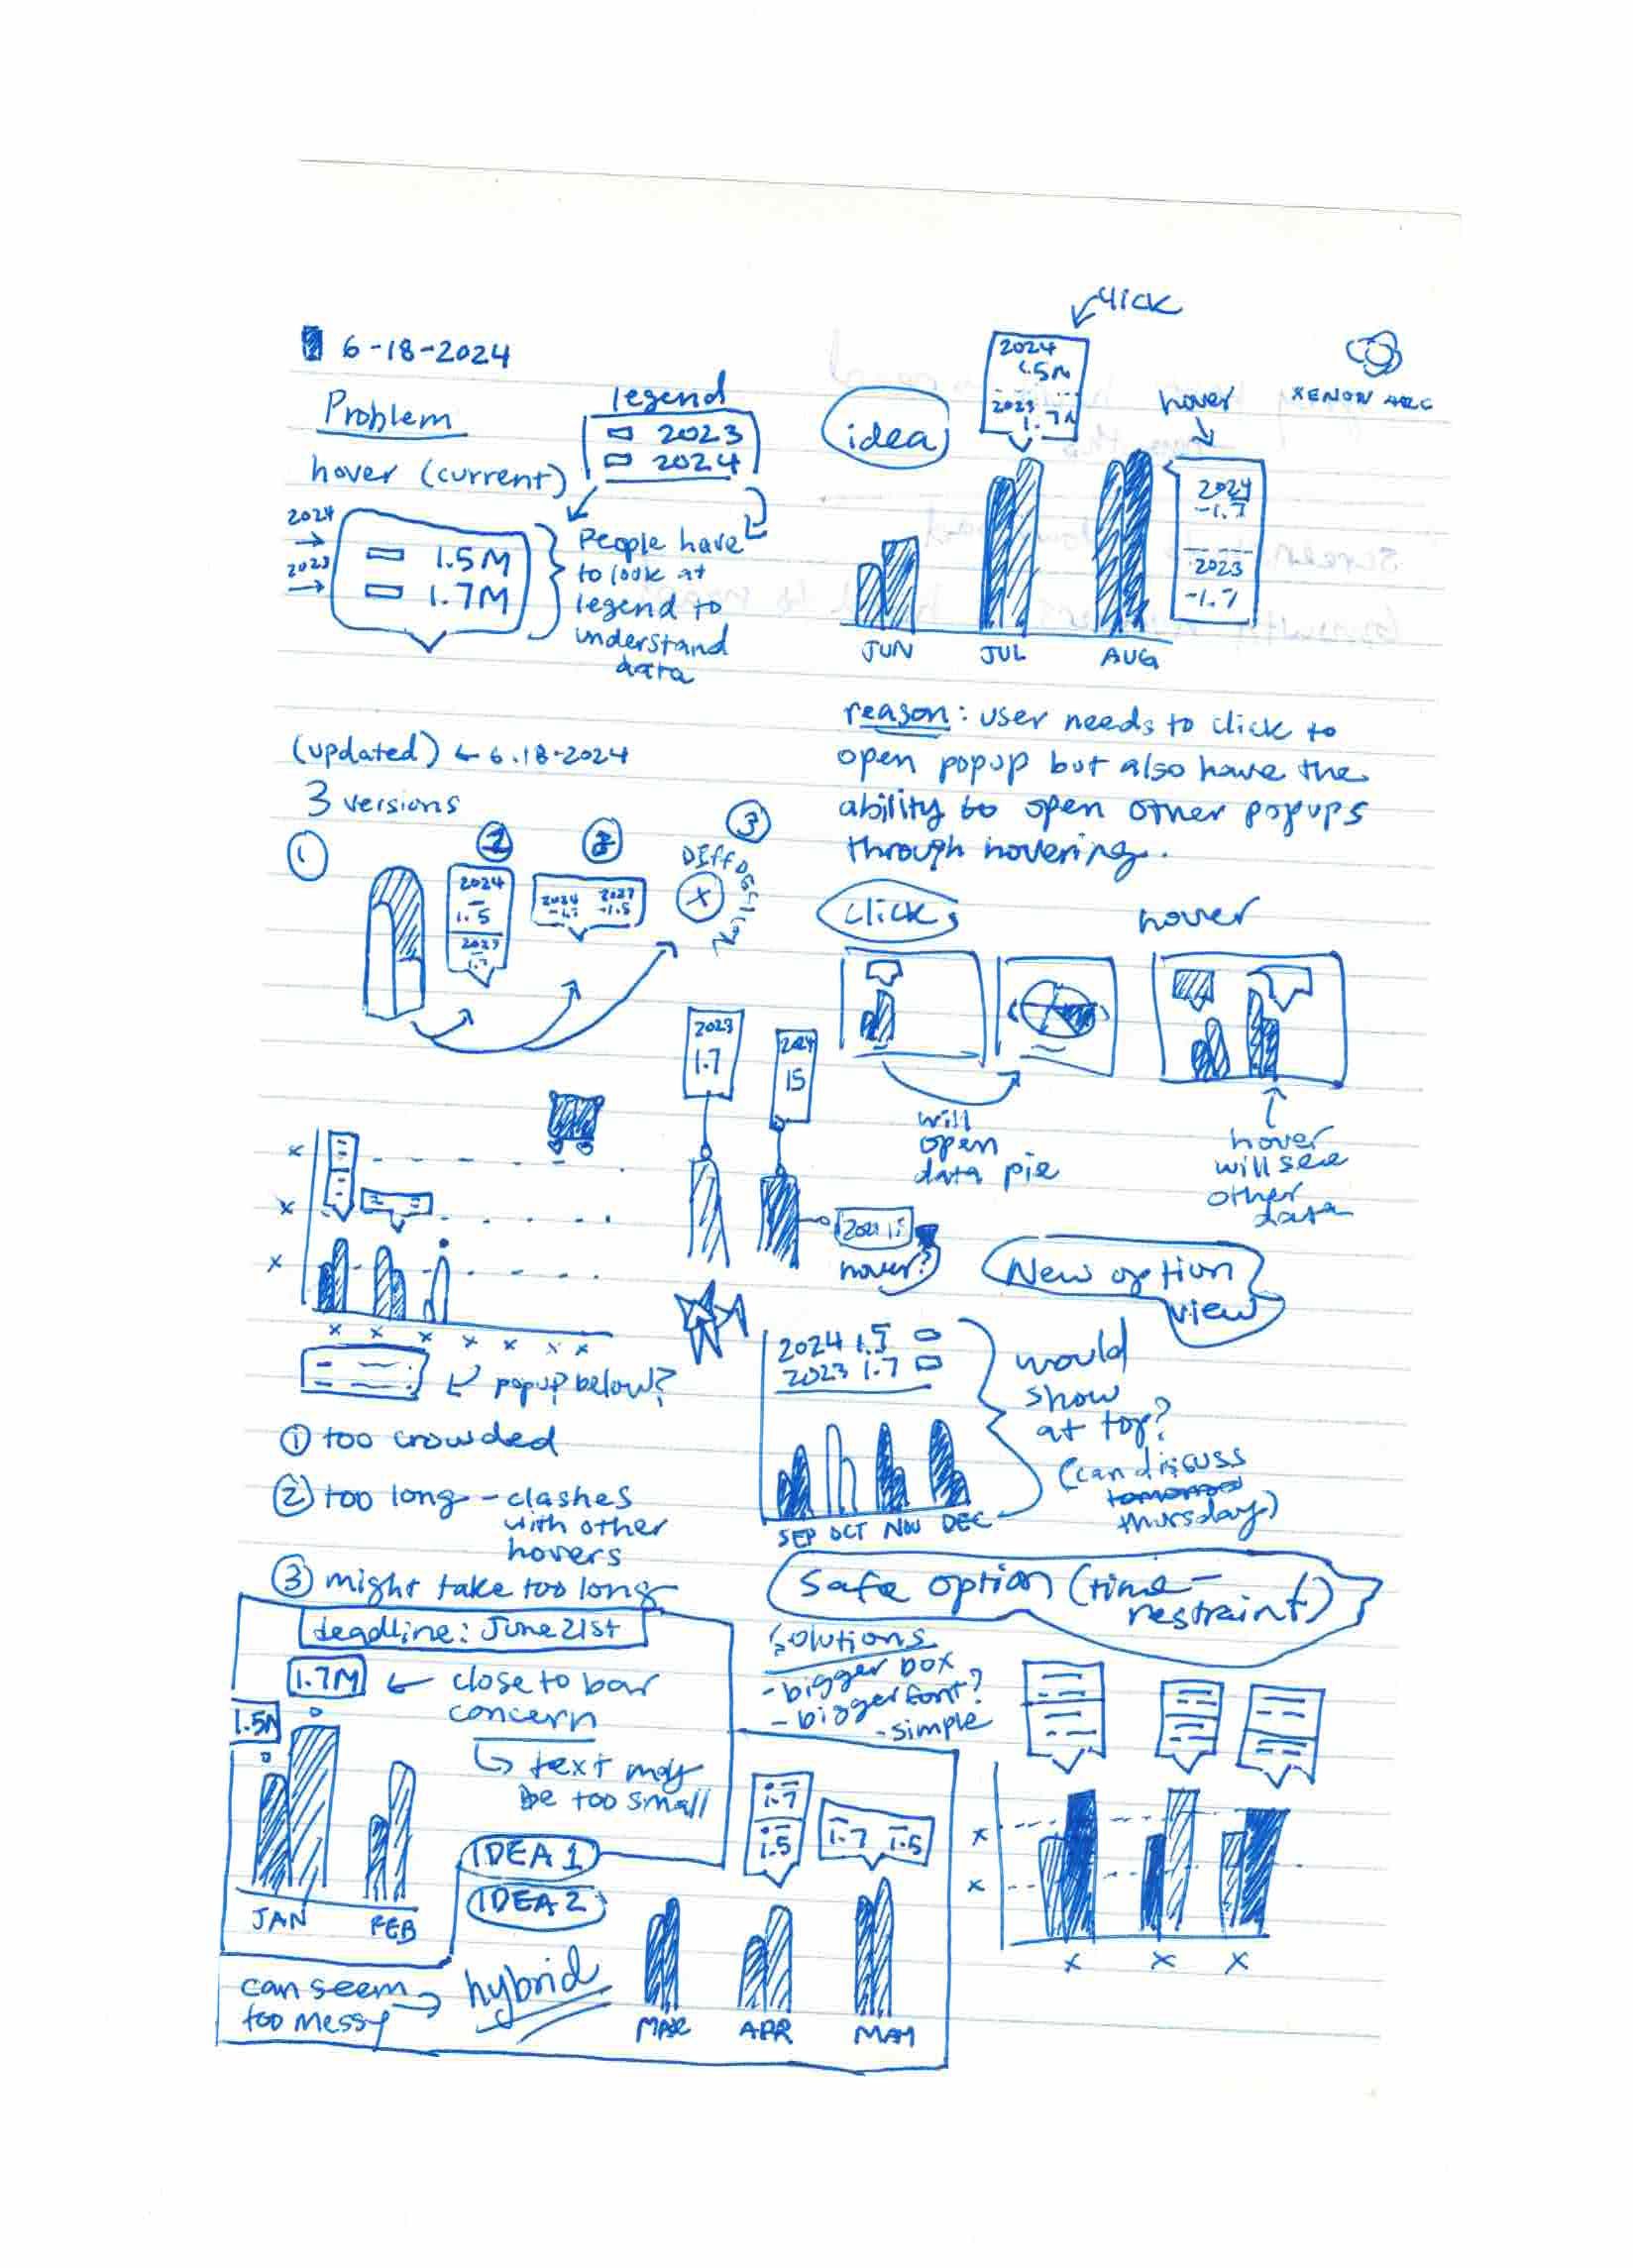 6-18-2024
Problem
hover (current)
legend
2023
2024
2024
2023
1.5M
1.7M
People have
to look at
legend to
understand
data
click
2024
1.5M
2023
1.7M
idea
hover
XENON ARC
2024
-1.7
2023
-1.7
JUN
JUL
AUG
reason: user needs to click to
open popup but also have the
ability to open other popups
through hovering.
(updated) ← 6.18-2024
3 versions
1
2
3
2024
1.5
2023
1.7
2024
2023
-1.5
X
click
hover
will
open
data pie
hover
will see
other
data
2023
1.7
2024
15
hover?
x
x
x
x x x x x x x
popup below?
① too crowded
② too long - clashes
with other
hovers
③ might take too long
New option
view
2024 1.5
2023 1.7
SEP OCT NOV DEC
would
show
at top?
(can discuss
tomorrow
thursday)
deadline: June 21st
1.7M ← close to bar
concern
1.5M
text may
be too small
JAN
FEB
IDEA 1
IDEA 2
can seem
too messy → hybrid
1.7
1.5
1.7 1.5
MAR
APR
MAY
Safe option (time-
restraint)
Solutions
- bigger box
- bigger font?
- simple
x
x
x x x